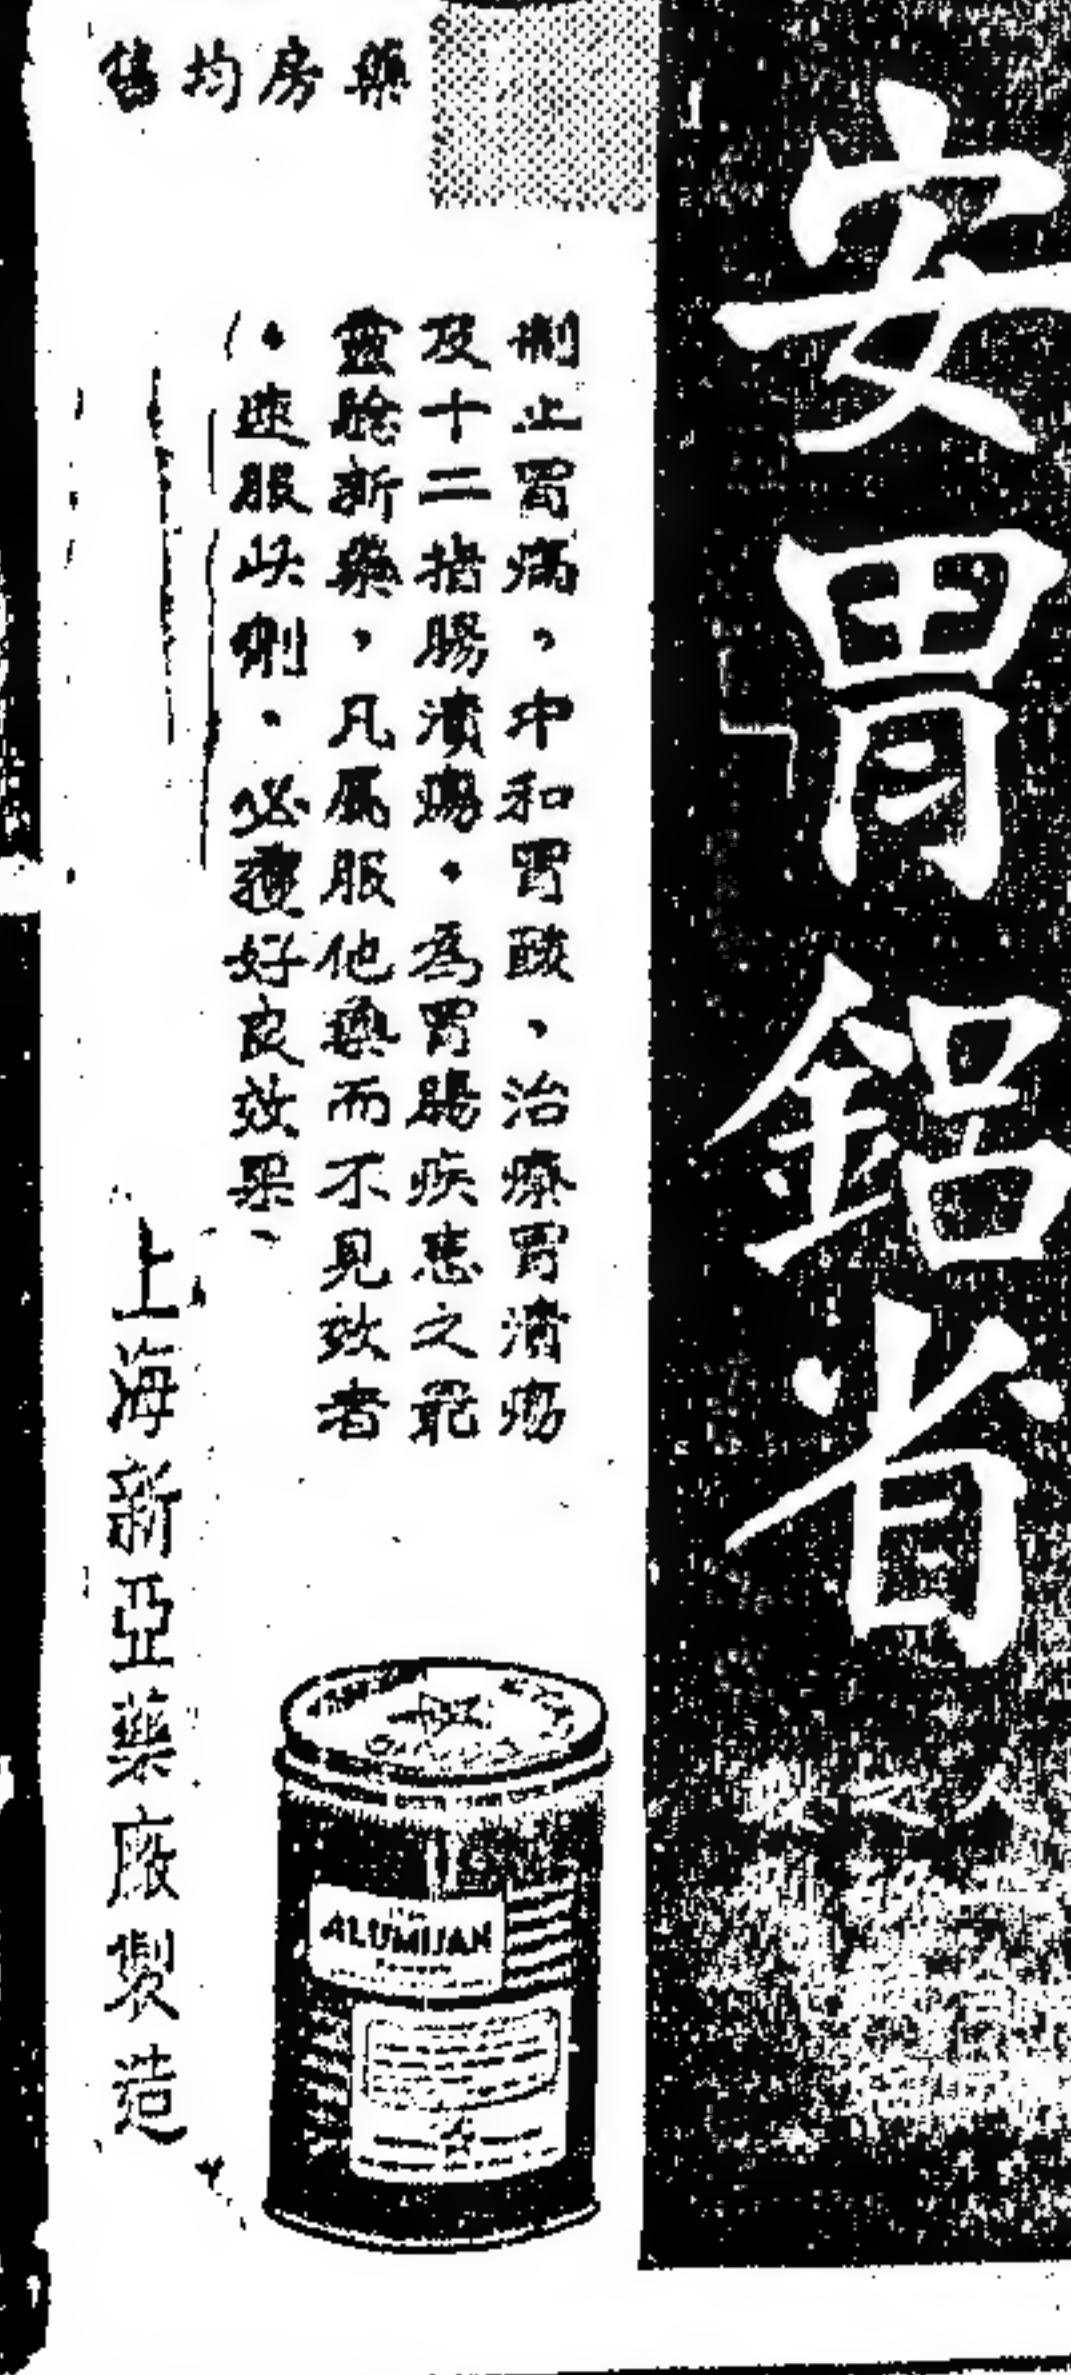 安胃鋁省
藥房均售
制止胃痛，中和胃酸，治療胃潰瘍
及十二指腸潰瘍。為胃腸疾患之最
靈驗新藥，凡屬服他藥而不見效者
。速服此劑。必獲好良效果、
上海新亞藥廠製造
ALUMIJAN